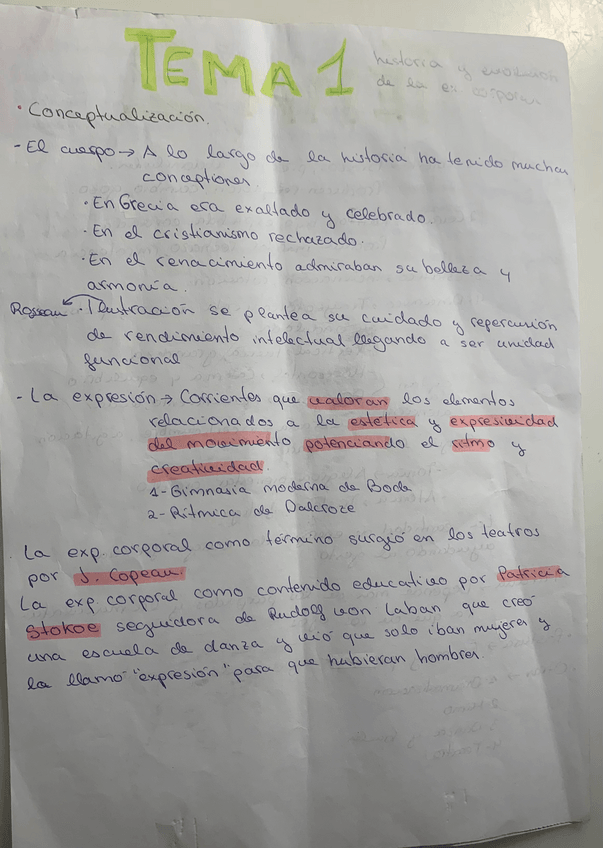 TEMA 1 historia y evolución
de la ex. corporal
· Conceptualización.
- El cuerpo → A lo largo de la historia ha tenido muchas
conceptiones
· En Grecia era exaltado y celebrado.
· En el cristianismo rechazado.
· En el renacimiento admiraban su belleza y
armonía.
Rosseau · Ilustración se plantea su cuidado y repercusión
de rendimiento intelectual llegando a ser unidad
funcional
- La expresión → Corrientes que valoran los elementos
relacionados a la estética y expresividad
del movimiento potenciando el ritmo y
creatividad.
1- Gimnasia moderna de Bode
2- Rítmica de Dalcroze
La exp. corporal como término surgió en los teatros
por J. Copeau.
La exp corporal como contenido educativo por Patricia
Stokoe seguidora de Rudolf von Laban que creó
una escuela de danza y vió que solo iban mujeres y
la llamó "expresión" para que hubieran hombres.